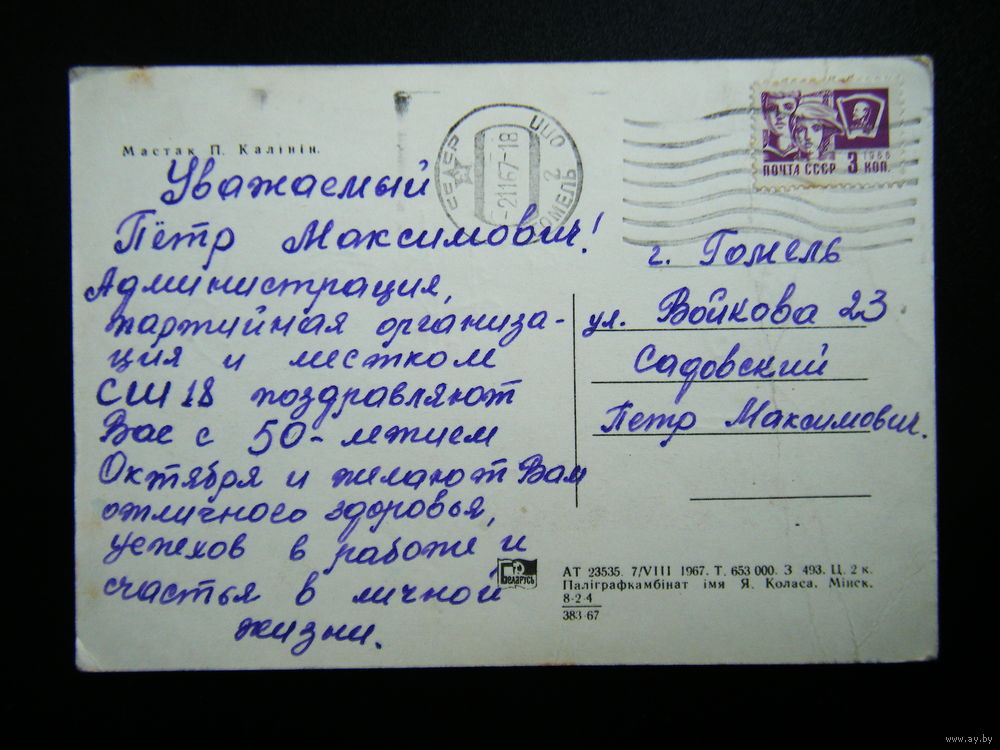 Мастак П. Калінін.
Уважаемый
Пётр Максимович!
Администрация,
партийная организа-
ция и местком
СШ 18 поздравляют
Вас с 50-летием
Октября и желают Вам
отличного здоровья,
успехов в работе и
счастья в личной
жизни.
СССР
ЦПО 2
-21167-18
ГОМЕЛЬ
1966
ПОЧТА СССР 3 КОП.
г. Гомель
ул. Войкова 23
Садовский
Петр Максимович.
Беларусь
АТ 23535. 7/VIII 1967. Т. 653 000. З 493. Ц. 2 к.
Паліграфкамбінат імя Я. Коласа. Мінск.
8-2-4
383-67
www.ay.by